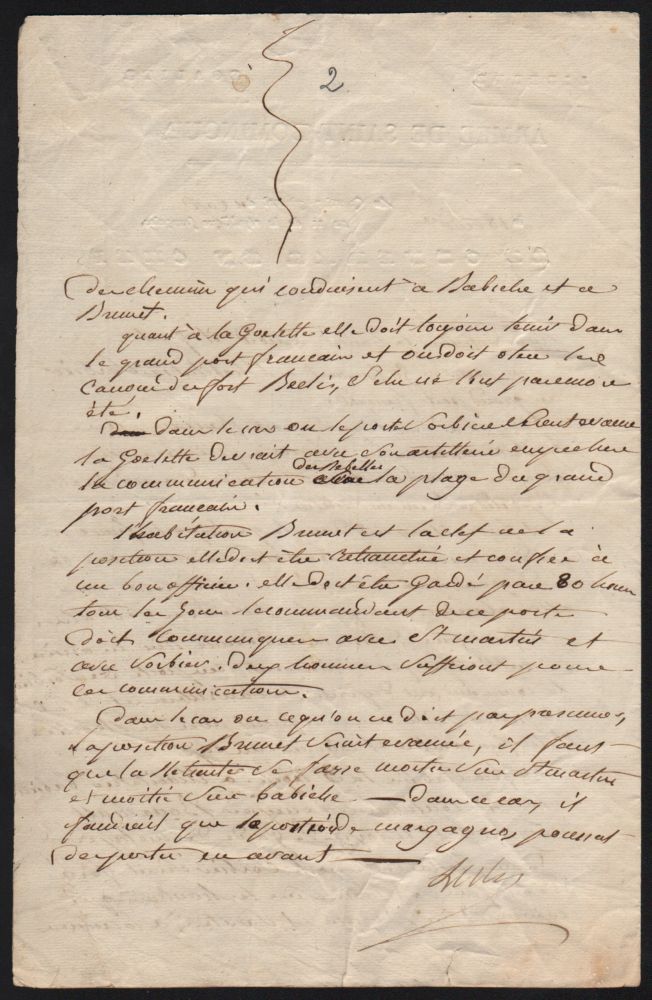 2
des chemins qui conduisent à Babiche et a
Brunet.
quant à la Goelette elle doit toujour tenir dans
le grand port francain et on doit oter les
canons du fort
été.
dans le cas ou le poste Sorbier
la Goelette devrait avec son artillerie empecher
la communication des Rebelles la plage du grand
port francain.
l'habitation Brunet est la clef de la
position elle doit être retranchée et confiée à
un bon officier. elle doit être gardé par 80 hom
tous les jour le commandant de ce poste
doit communiquer avec St martin et
avec Sorbier. deux hommes suffiront pour
ces communications.
Dans le cas ou ce qu'on ne doit pas
la position Brunet serait evacuée, il faut
que la Retraite se fasse moitié sur St martin
et moitié sur babiche — dans ce cas, il
faudrait que le poste de margagnos poussat
des postes en avant —